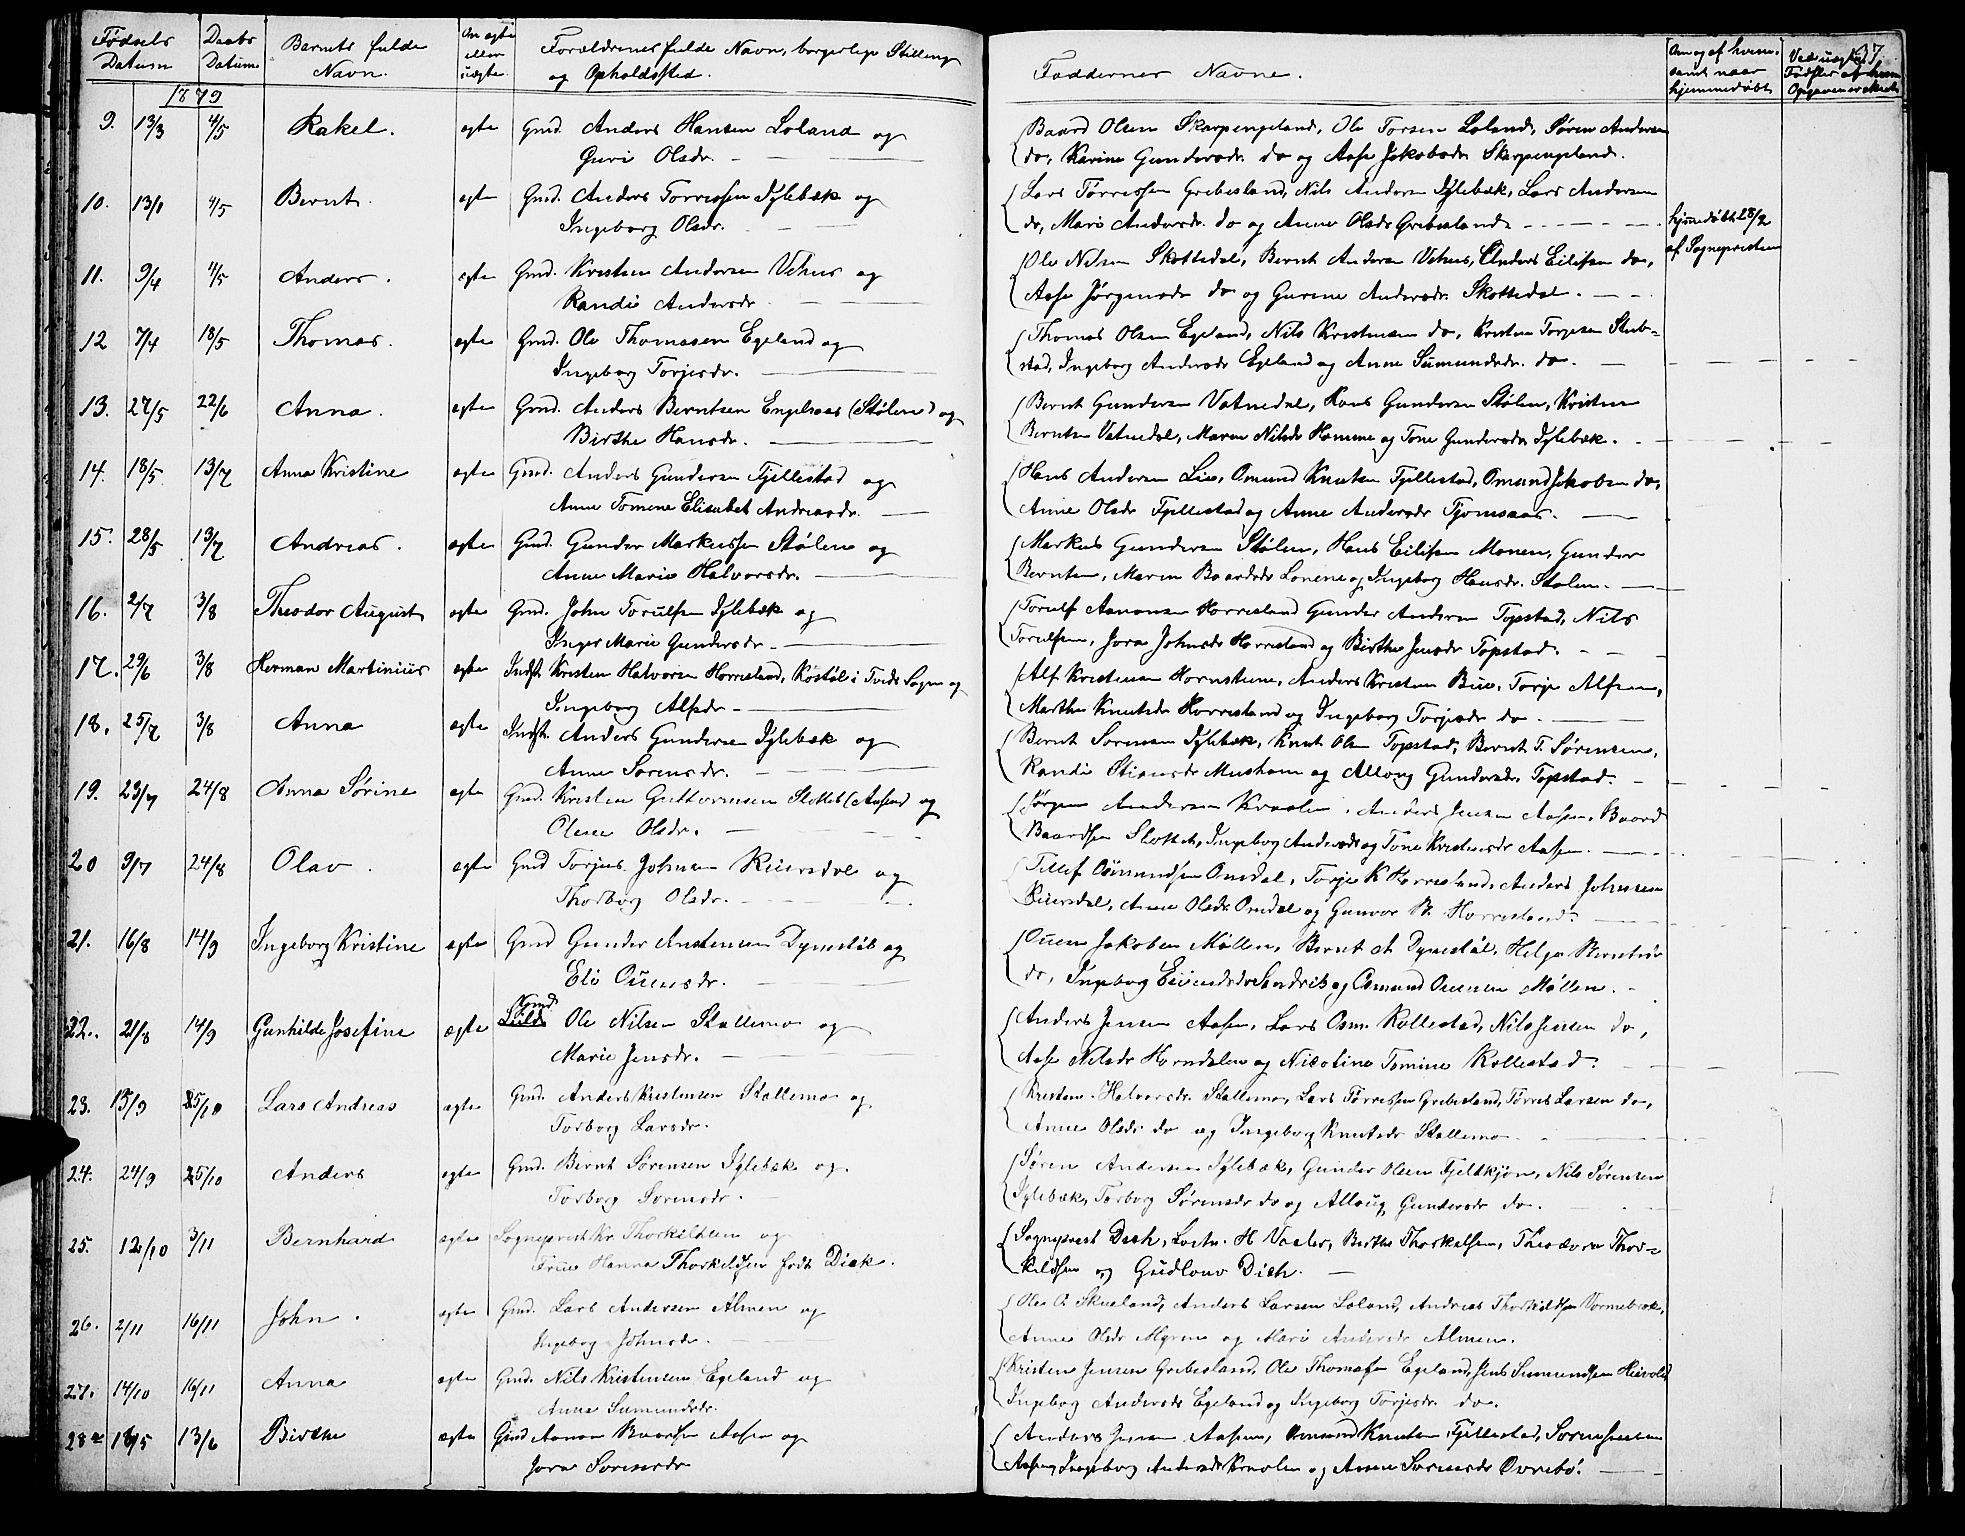 Fødsels Datum
Daabs Datum
Barnets fulde Navn.
Om ægte eller uægte.
Forældrenes fulde Navn, borgerlige Stilling
og Opholdssted.
Faddernes Navne.
Om og af hvem samt naar hjemmedøbt
Ved uægte Fødsler af hvem Opgaven er skeet
37.
1879
9. 13/3 4/5 Rakel. ægte Gmd. Anders Hansen Loland og
Guri Olsdr.
Baard Olsen Skarpengeland, Ole Torsen Loland, Søren Andersen
do, Karine Gundersdr. do og Aase Jakobsdr. Skarpengeland.
10. 13/1 4/5 Bernt. ægte Gmd. Anders Torressen Iglebæk og
Ingeborg Olsdr.
Lars Tørressen Grebesland, Nils Andersen Iglebæk, Lars Andersen
do, Mari Andersdr. do og Anne Olsdr Grebesland
hjemdøbt 28/2
af Sognepresten
11. 9/4 4/5 Anders. ægte Gmd. Kristen Andersen Vehus og
Randi Andersdr.
Ole Nilsen Skottedal, Bernt Andersen Vehus, Anders Eilifsen do,
Aase Jørgensdr do og Gurine Andersdr. Skottedal.
12 7/4 18/5 Thomas. ægte Gmd. Ole Thomasen Egeland og
Ingeborg Torjesdr.
Thomas Olsen Egeland, Nils Kristensen do, Kristen Torjesen Stub-
stad, Ingeborg Andersdr Egeland og Anne Sumundsdr. do.
13. 27/5 22/6 Anna. ægte Gmd. Anders Berntsen Engelsaas (Stølen) og
Birthe Hansdr.
Bernt Gundersen Vatnedal, Hans Gundersen Stølen, Kristen
Berntsen Vatnedal, Maren Nilsdr Homme og Tone Gundersdr Iglebæk.
14. 18/5 13/7 Anna Kristine ægte Gmd. Anders Gundersen Fjellestad og
Anne Tomine Elisabet Andreasdr.
Hans Andersen Lie, Omund Knutsen Fjellestad, Omund Jakobsen do,
Anne Olsdr Fjellestad og Anne Andersdr Tjomsaas.
15. 28/5 13/7 Andreas. ægte Gmd. Gunder Markussen Stølene og
Anne Marie Halvorsdr.
Markus Gundersen Stølen, Hans Eilifsen Monen, Gunder
Berntsen, Maren Baardsdr Lonene og Ingeborg Hansdr. Stølen.
16. 2/7 3/8 Theodor August ægte Gmd. John Torulfsen Iglebæk og
Inger Marie Gundersdr.
Torulf Aanonsen Horresland Gunder Andersen Topstad, Nils
Torulfsen, Jora Johnsdr Horresland og Birthe Jensdr Topstad.
17. 29/6 3/8 Herman Martinius ægte Indst. Kristen Halvorsen Horresland, Kostøl i Tveids Sogn og
Ingeborg Alfsdr
Alf Kristensen Hornstune, Anders Kristen Bue, Torje Alfsen,
Marthe Knutsdr Horresland og Ingeborg Torjesdr do.
18. 25/7 3/8 Anna ægte Indst. Anders Gundersen Iglebæk og
Anne Sørensdr.
Bernt Sørensen Iglebæk, Knut Olsen Topstad, Bernt T. Sørensen,
Randi Stiansdr Mushom og Alloug Gundersdr. Topstad.
19. 23/7 24/8 Anna Sørine ægte Gmd. Kristen Guttormsen Slottet (Aasen) og
Olene Olsdr.
Jørgen Andersen Kraalen, Anders Jensen Aasen, Baard
Baardsen Slottet, Ingeborg Andersdr og Tone Kristensdr Aasen.
20 9/7 24/8 Olav. ægte Gmd Torjus Johnsen Reiersdal og
Thorborg Olsdr.
Tellef Osmundsen Omdal, Torje K Horresland, Anders Johnsen
Reiersdal, Anne Olsdr. Omdal og Gunvor B. Horresland.
21. 16/8 14/9 Ingeborg Kristine ægte Gmd Gunder Anstensen Dynestøl og
Eli Ouensdr.
Ouen Jakobsen Møllen, Bernt A Dynestøl, Helge Berntsdr
do, Ingeborg Eivindsdr Sandrik og Osmund Ouensen Møllen.
22. 21/8 14/9 Gunhilde Josefine ægte Gmd. Ole Nilsen Stallemo og
Marie Jensdr.
Anders Jensen Aasen, Lars Osm. Rollestad, Nils Jensen do,
Aase Nilsdr Horndalen og Nicoline Tomine Kollestad.
23. 13/9 25/10 Lars Andreas ægte Gmd. Anders Kristensen Stallemo og
Torborg Larsdr.
Kristen Halvorsdr. Stallemo, Lars Tørressen Grebesland, Torres Larsen do,
Anne Olsdr do og Ingeborg Knutsdr Stallemo.
24. 24/9 25/10 Anders ægte Gmd. Bernt Sørensen Iglebæk og
Torborg Sørensdr.
Søren Andersen Iglebæk, Gunder Olsen Fjeldkjøn, Nils Sørensen
Iglebæk, Torborg Sørensdr do og Alloug Gundersdr do.
25. 12/10 3/11 Bernhard ægte Sogneprest Kr. Thorkildsen og
Frue Hanna Thorkildsen født Dick.
Sogneprest Dick, Løitn. H Vaaler, Berthe Thorkelsen, Theodora Thor-
kildsen og Gudlove Dick.
26. 2/11 16/11 John. ægte Gmd. Lars Andersen Almen og
Ingeborg Johnsdr.
Ole O. Skueland, Anders Larsen Loland, Andreas Thorkildsen Vormebæk,
Anne Olsdr Myren og Mari Andersdr Almen.
27. 14/10 16/11 Anna ægte Gmd. Nils Kristensen Egeland og
Anne Sumundsdr.
Kristen Jensen Grebesland, Ole Thomasen Egeland, Jens Sumundsen Heivold
Ingeborg Andersdr Egeland og Ingeborg Torjesdr. do.
28 18/5 13/6 Birthe ægte Gmd Aanon Baardsen Aasen og
Jora Sørensdr
Anders Jensen Aasen, Omund Knutsen Fjellestad, Søren Jensen
Aasen, Ingeborg Andersdr Kraalen og Anne Sørensdr Øvrebø.